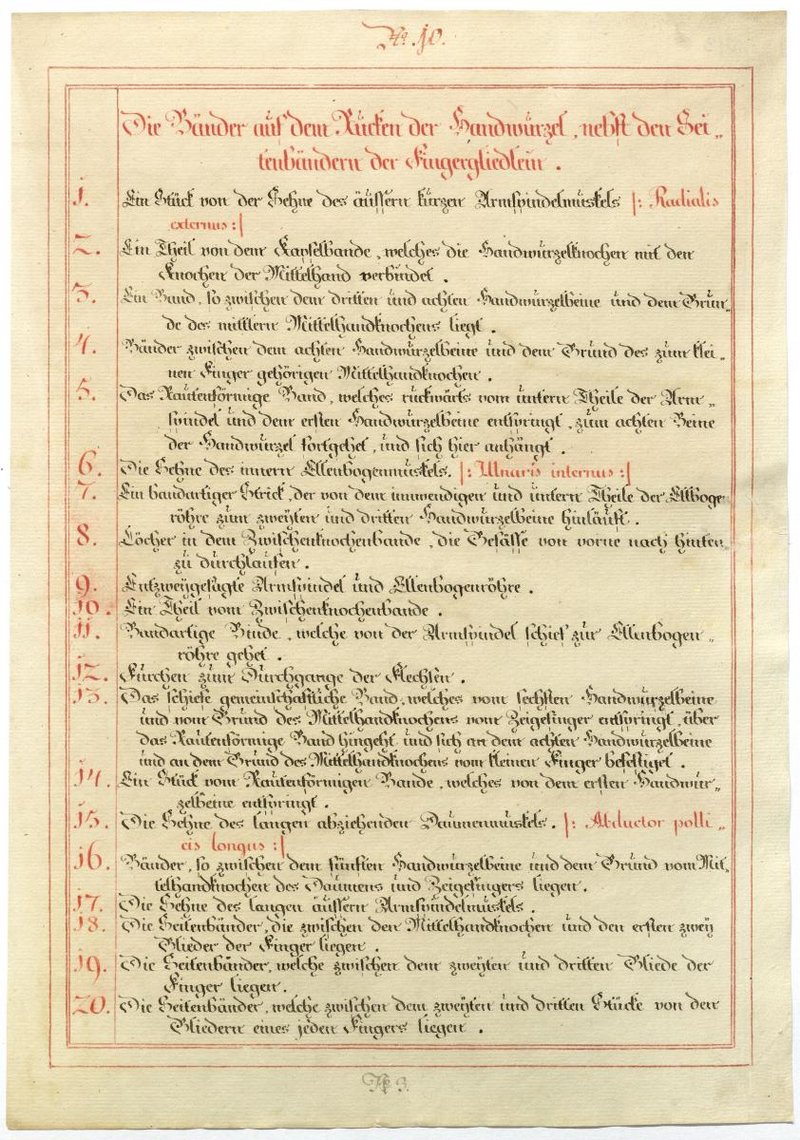 No. 10.
Die Bänder auf dem Rücken der Handwurzel, nebst den Sei„
tenbändern der Fingergliedlein.
1. Ein Stück von der Sehne des äussern kurzen Armspindelmuskels |: Radialis
externus :|
2. Ein Theil von dem Kapselbande, welches die Handwurzelknochen mit den
Knochen der Mittelhand verbindet.
3. Ein Band, so zwischen dem dritten und achten Handwurzelbeine und dem Grun„
de des mittlern Mittelhandknochens liegt.
4. Bänder zwischen dem achten Handwurzelbeine und dem Grund des zum klei„
nen Finger gehörigen Mittelhandknochen.
5. Das Rautenförmige Band, welches rückwärts vom untern Theile der Arm„
spindel und dem ersten Handwurzelbeine entspringt, zum achten Beine
der Handwurzel fortgehet, und sich hier anhängt.
6. Die Sehne des innern Ellenbogenmuskels. |: Ulnaris internus :|
7. Ein bandartiger Strick, der von dem innwendigen und untern Theile der Ellboge„
röhre zum zweyten und dritten Handwurzelbeine hinläuft.
8. Löcher in dem Zwischenknochenbande, die Gefässe von vorne nach hinten
zu durchlaufen.
9. Entzweygesagte Armspindel und Ellenbogenröhre.
10. Ein Theil vom Zwischenknochenbande.
11. Bandartige Binde, welche von der Armspindel schief zur Ellenbogen„
röhre gehet.
12. Furchen zum Durchgange der Flechsen.
13. Das schiefe gemeinschaftliche Band, welches vom sechsten Handwurzelbeine
und vom Grund des Mittelhandknochens vom Zeigefinger entspringt, über
das Rautenförmige Band hingeht, und sich an dem achten Handwurzelbeine
und an dem Grund des Mittelhandknochens vom kleinen Finger befestiget.
14. Ein Stück vom Rautenförmigen Bande, welches von dem ersten Handwur„
zelbeine entspringt.
15. Die Sehne des langen abziehenden Daumenmuskels. |: Abductor polli„
cis longus :|
16. Bänder, so zwischen dem fünften Handwurzelbeine und dem Grund vom Mit„
telhandknochen des Daumens und Zeigefingers liegen.
17. Die Sehne des langen äussern Armspindelmuskels.
18. Die Seitenbänder, die zwischen den Mittelhandknochen und den ersten zwey
Glieder der Finger liegen.
19. Die Seitenbänder, welche zwischen dem zweyten und dritten Gliede der
Finger liegen.
20. Die Seitenbänder, welche zwischen dem zweyten und dritten Stücke von den
Gliedern eines jeden Fingers liegen.